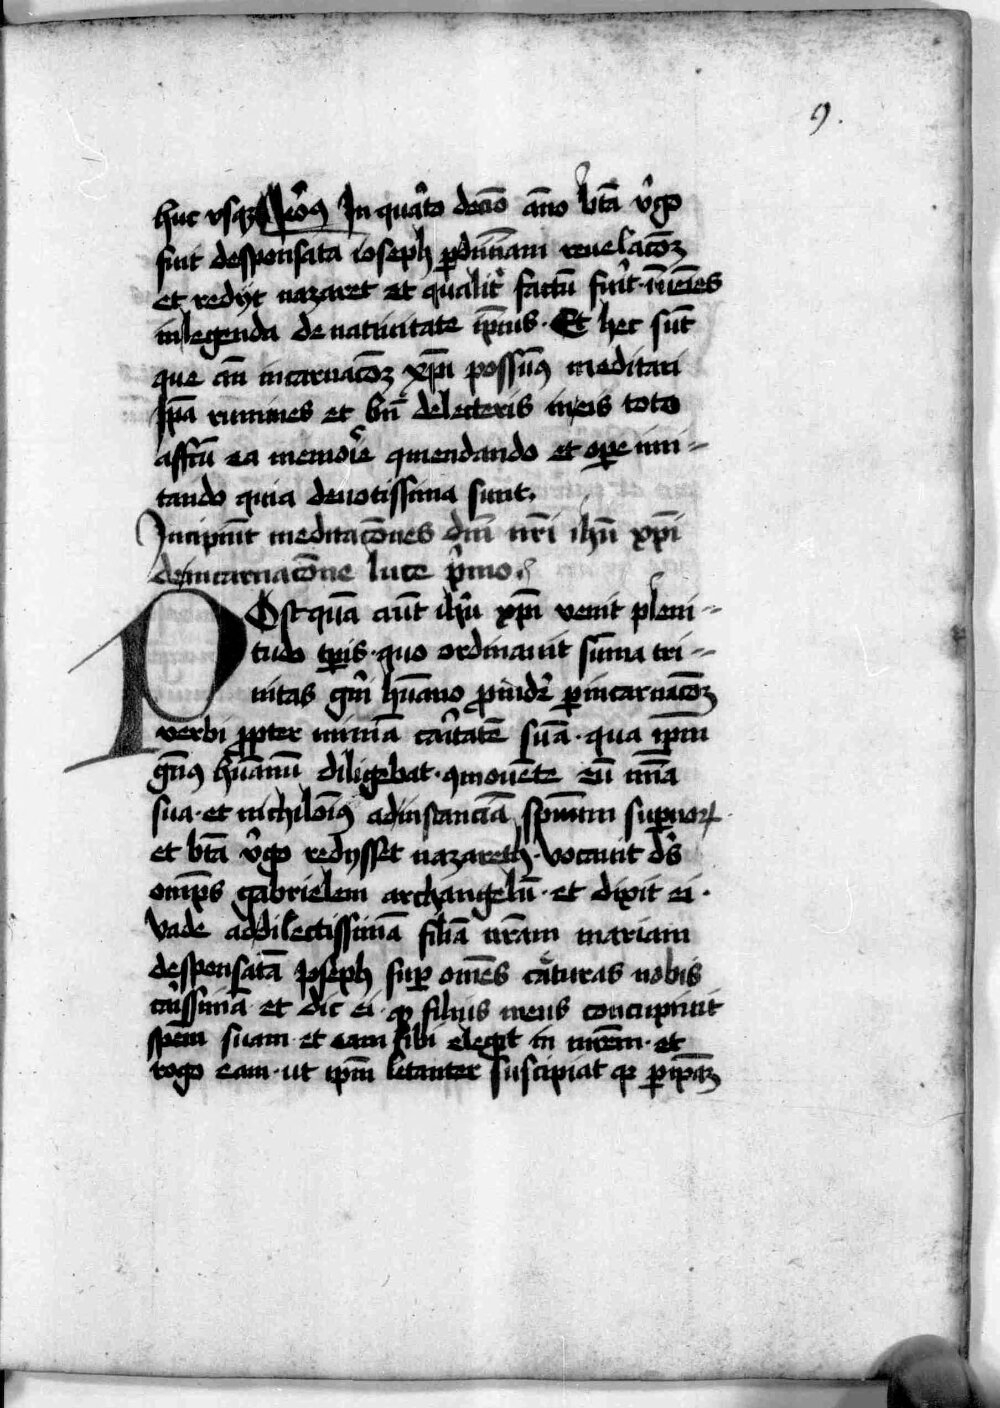 9.
huc usqꝫ Jeroͨꝰ In quãto decio ãno bta vˈgo
fuit desponsata ioseph ꝑ diuinam reuelacoꝫ
et redyt nazaret et qualitˈ factū fuˈit · inueies
in legenda de natiuitate ip̄ius · Et hec sūt
que añ incarnacoꝫ xp̄i possumꝰ meditari
Ip̄a rumines et bñ delecteris in eis toto
affcū ea memorie cōmendando et oꝑe imi-
tando quia deuotissima sunt.
Incipiūt meditacōnes dñi nr̄i ihū xp̄i
de incarnacōne luce pˈmo.
POstquā aūt ihū xp̄i venit pleni-
tudo tꝑis · quo ordinauit sūma tri-
nitas gñi hūano ꝓuidˈe ꝑ incarnacoꝫ
verbi ꝓpter nimiā caˈitatē suā · qua ip̄m
genꝰ hūanū diligebat · cōmouēte eū mīa
sua · et nichiloīꝰ ad instanciā spirituum suꝑnoꝝ
et btā vˈgo redysset nazareth · Vocauit dˈs
omp̄s gabrielem archangelū · et dixit ei ·
Vade ad dilectissimā filiā nr̄am mariam
desponsatā Joseph suꝑ omēs cͣturas nobis
caˈissimā · et dic ei · ꝙ filius meus concupiuit
spem suam · et eam sibi elegit in mr̄em · et
rogo eam · ut ip̄m letanter suscipiat qꝛ ꝑ ip̄aꝫ